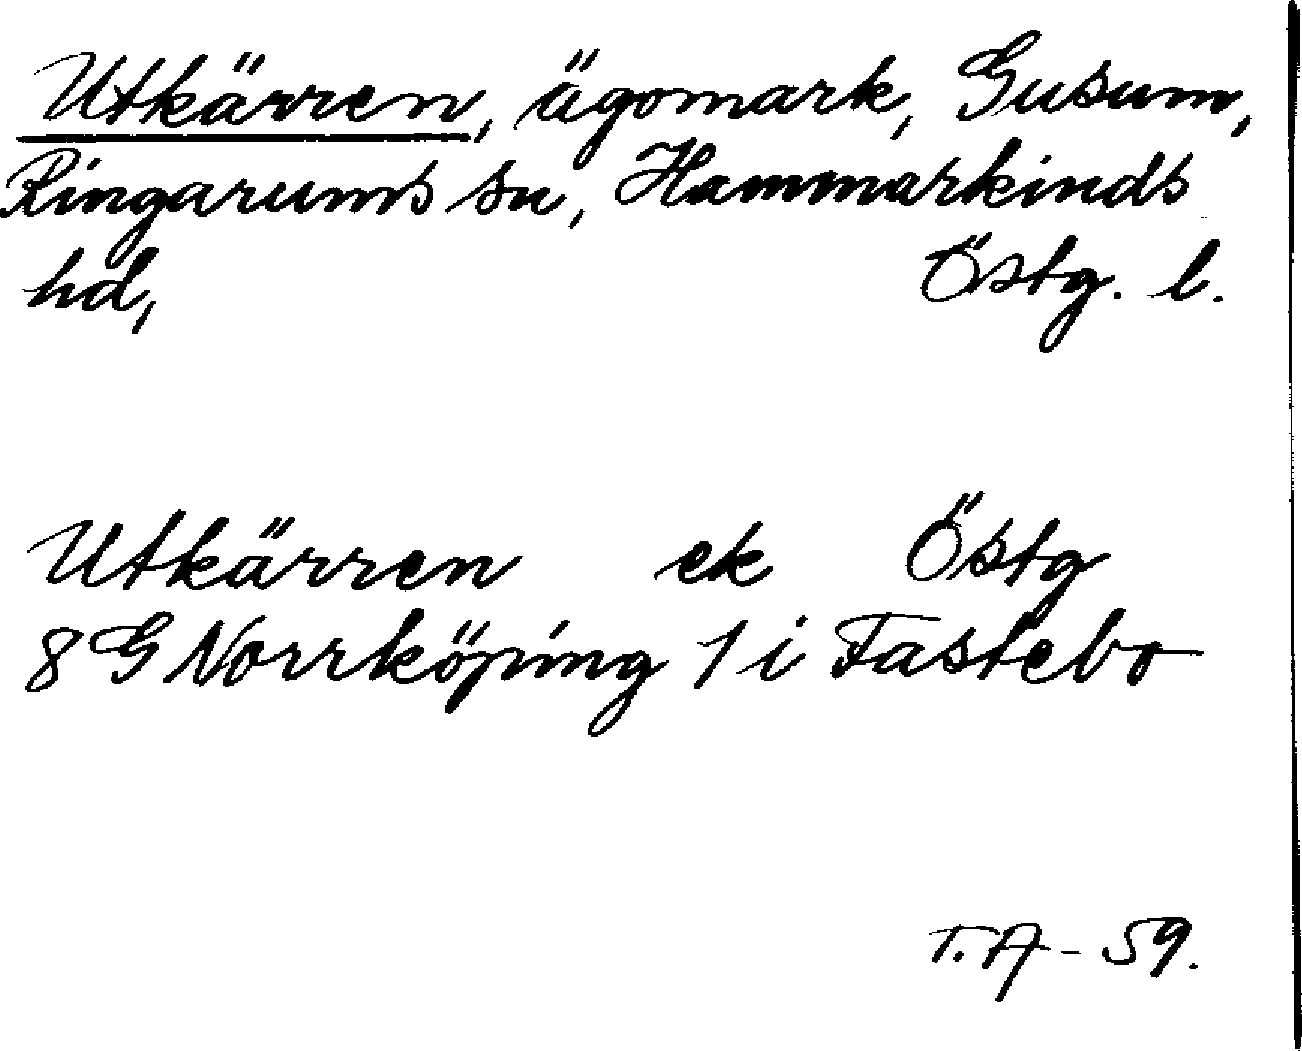 Utkärren, ägomark, Gusum,
Ringarums sn, Hammarkinds
hd, Östg. l.
Utkärren ek Östg
8 G Norrköping 1 i Fastebo
T.A - 59.